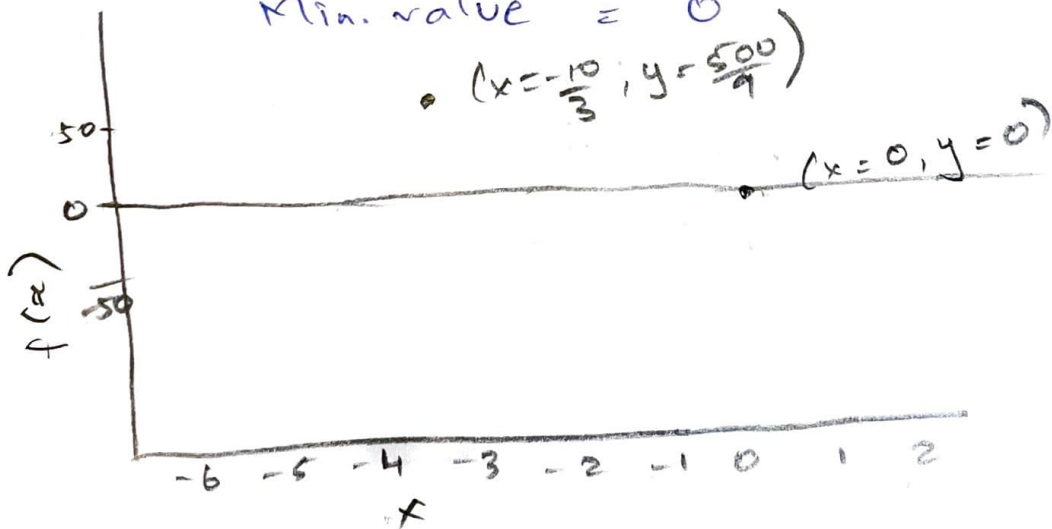 Min. value = 0
(x=-10/3, y=500/9)
50
(x=0, y=0)
0
f(x)
-50
-6 -5 -4 -3 -2 -1 0 1 2
x